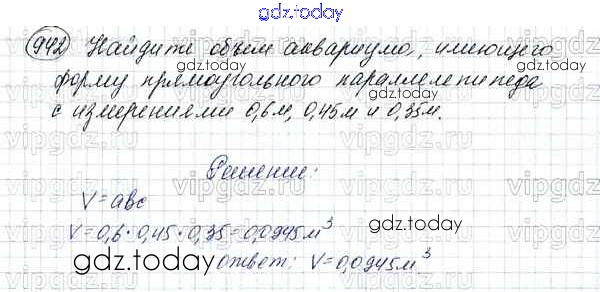 gdz.today
942 Найдите объем аквариума, имеющего
форму прямоугольного параллелепипеда
с измерениями 0,6м, 0,45м и 0,35м.
gdz.today
gdz.today
Решение:
V=abc
V=0,6·0,45·0,35=0,0945м³
gdz.today
gdz.today
ответ: V=0,0945м³